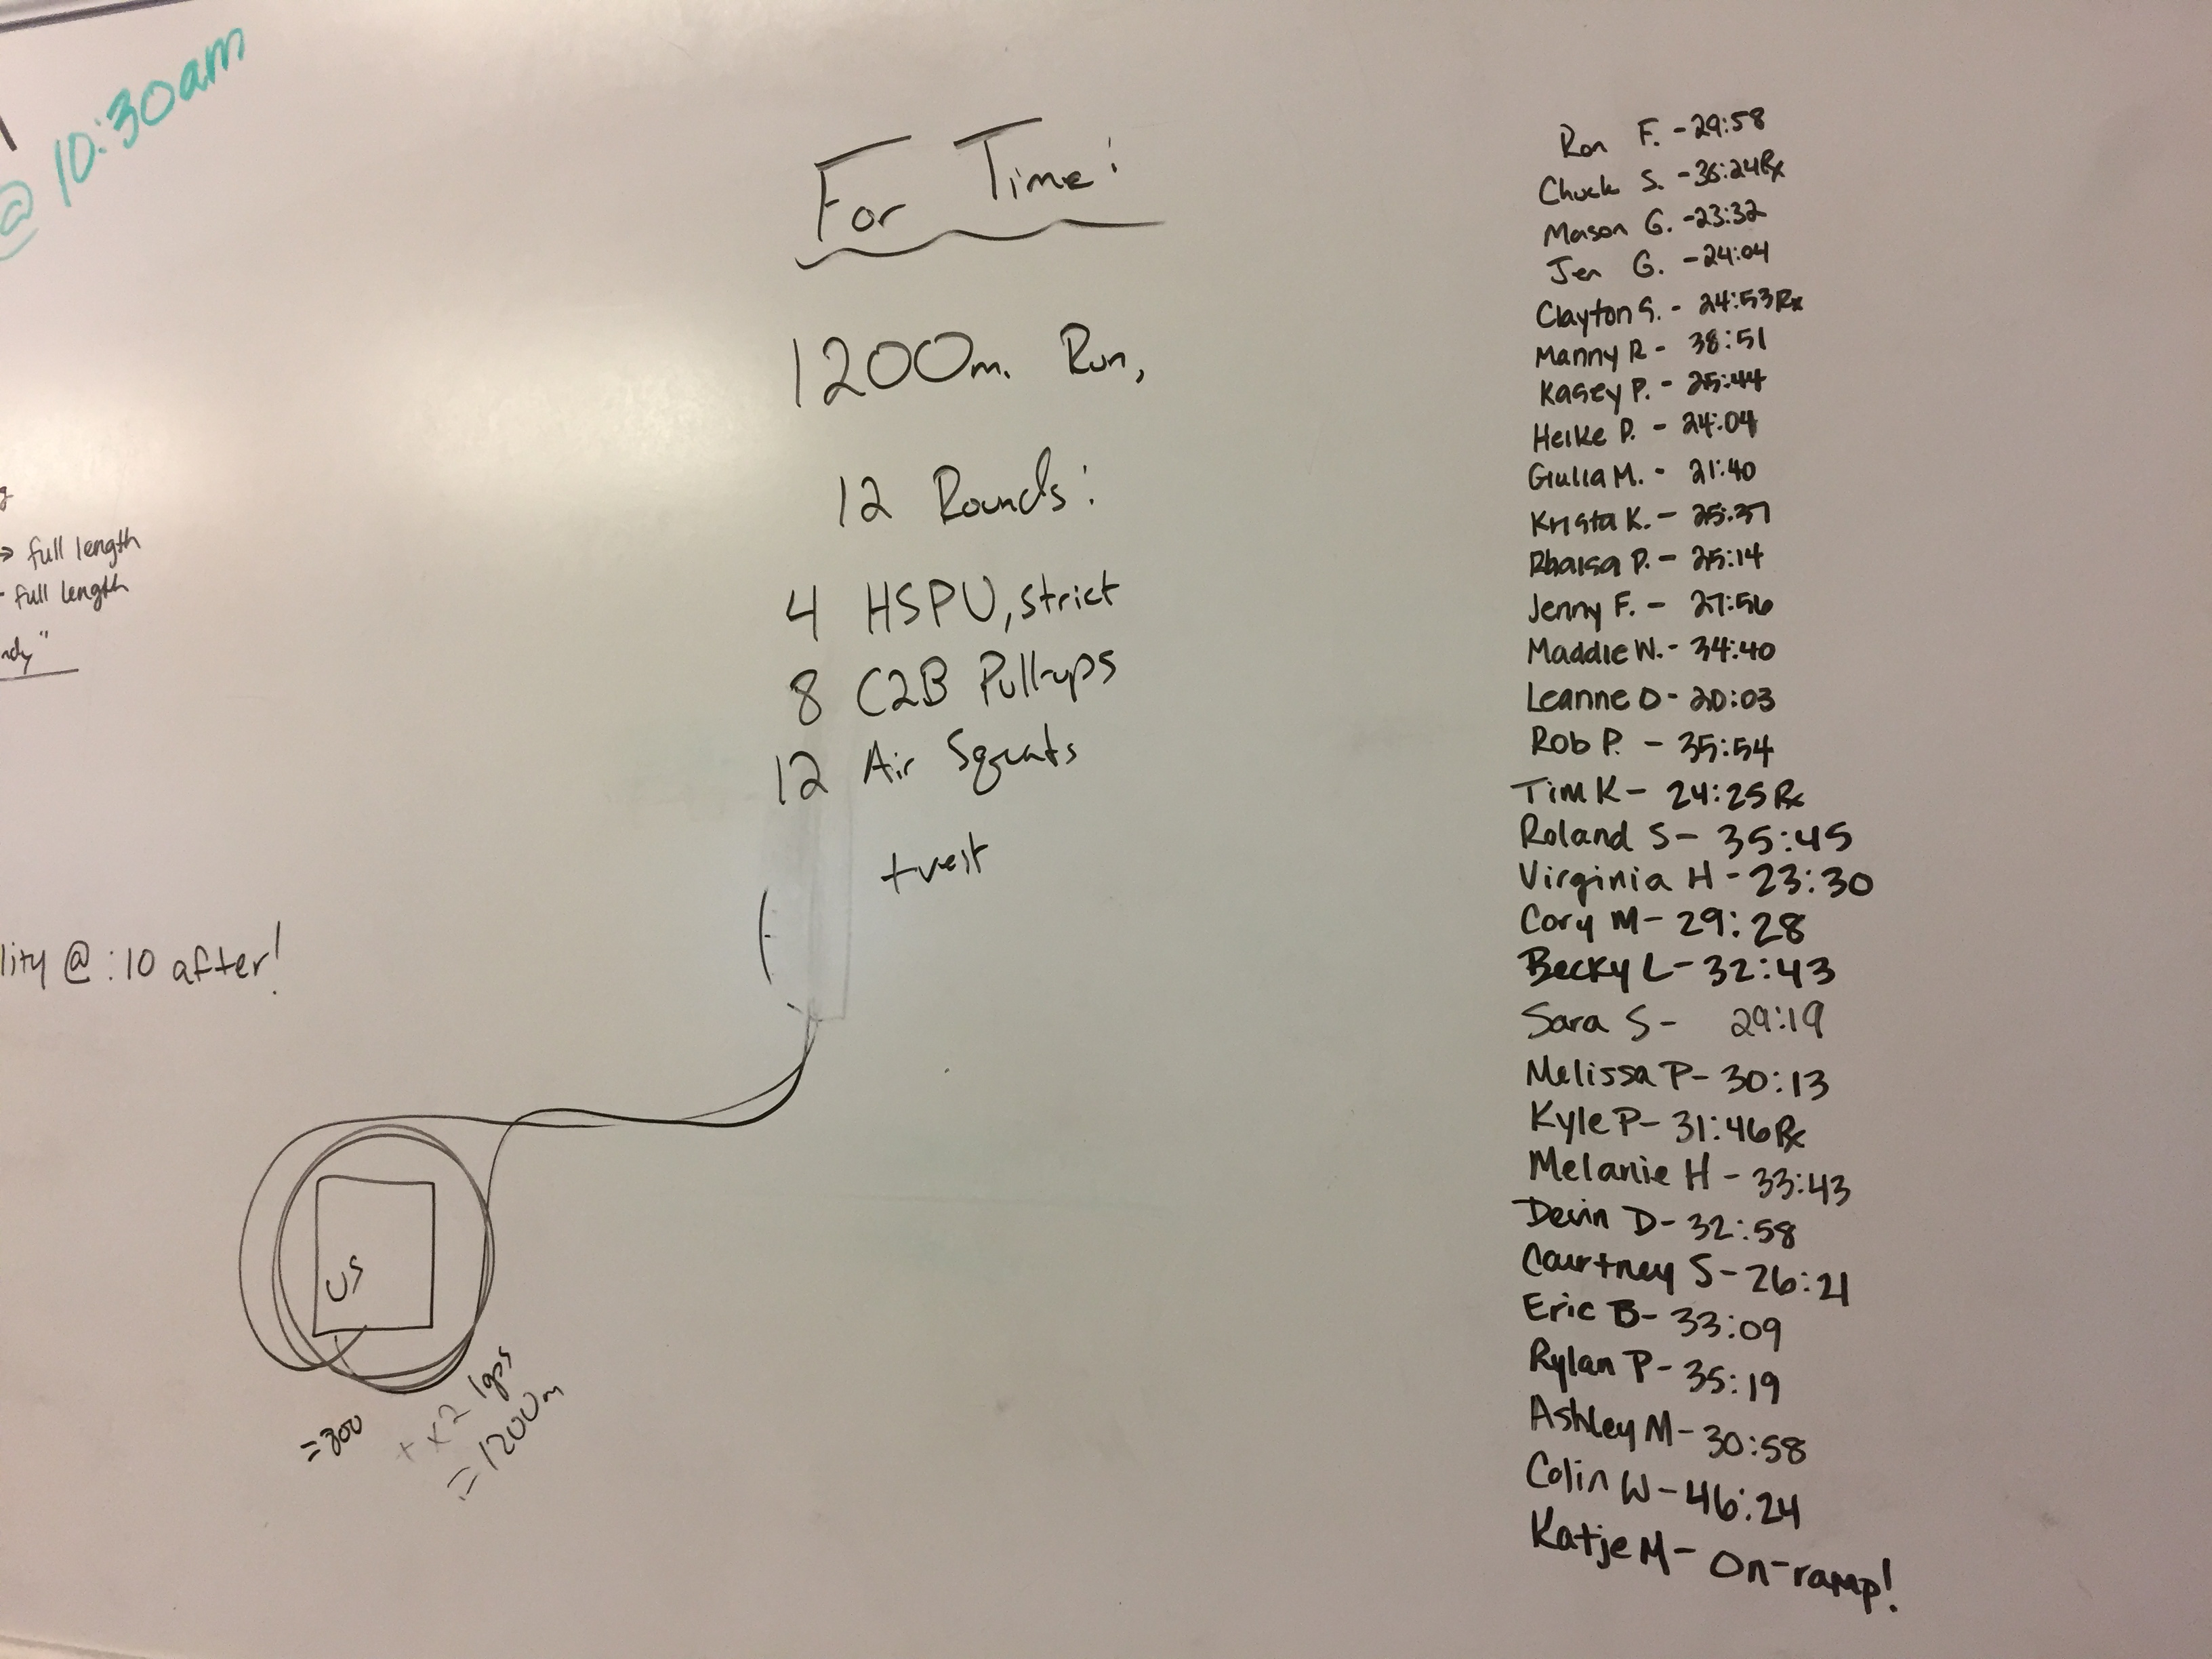 @ 10:30am
→ full length
- full length
ndy"
lity @ :10 after!
For Time:
1200m. Run,
12 Rounds:
4 HSPU, strict
8 C2B Pull-ups
12 Air Squats
+vest
US
=800
+ x2 laps
=1200m
Ron F. - 29:58
Chuck S. - 36:24 Rx
Mason G. - 23:32
Jen G. - 24:04
Clayton G. - 24:53 Rx
Manny R - 38:51
Kasey P. - 25:44
Heike P. - 24:04
Giulia M. - 21:40
Krista K. - 25:37
Rhaisa P. - 25:14
Jenny F. - 27:56
Maddie W. - 34:40
Leanne O - 20:03
Rob P. - 35:54
Tim K - 24:25 Rx
Roland S - 35:45
Virginia H - 23:30
Cory M - 29:28
Becky L - 32:43
Sara S - 29:19
Melissa P - 30:13
Kyle P - 31:46 Rx
Melanie H - 33:43
Devin D - 32:58
Courtney S - 26:21
Eric B - 33:09
Rylan P - 35:19
Ashley M - 30:58
Colin W - 46:24
Katje M - On-ramp!